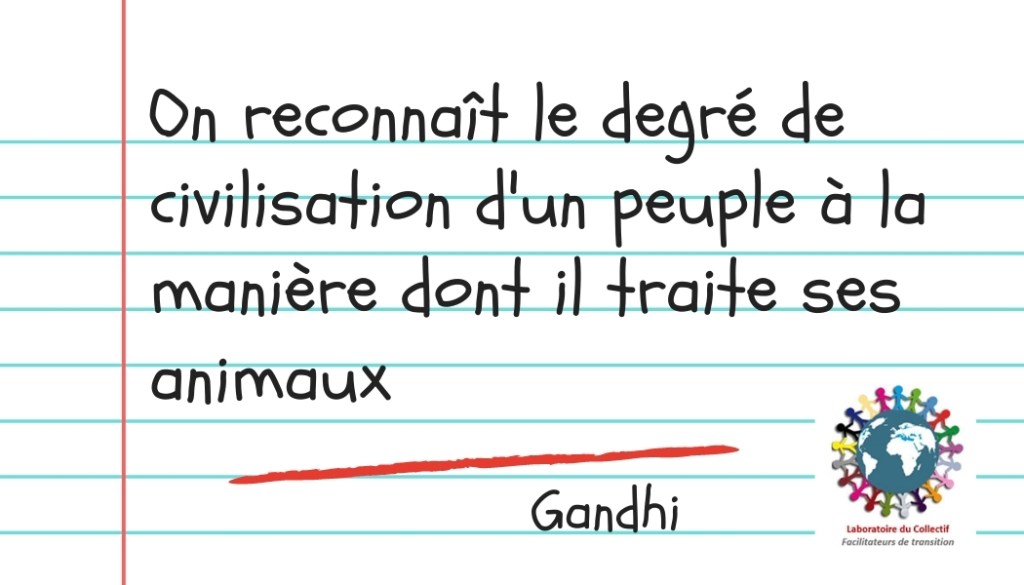 On reconnaît le degré de
civilisation d'un peuple à la
manière dont il traite ses
animaux
Gandhi
Laboratoire du Collectif
Facilitateurs de transition